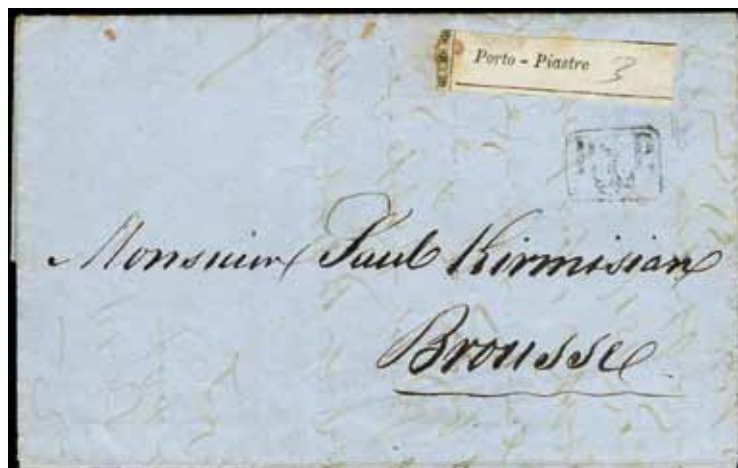 Porto - Piastre 3
Monsieur Paul Kirmisian
Brousse